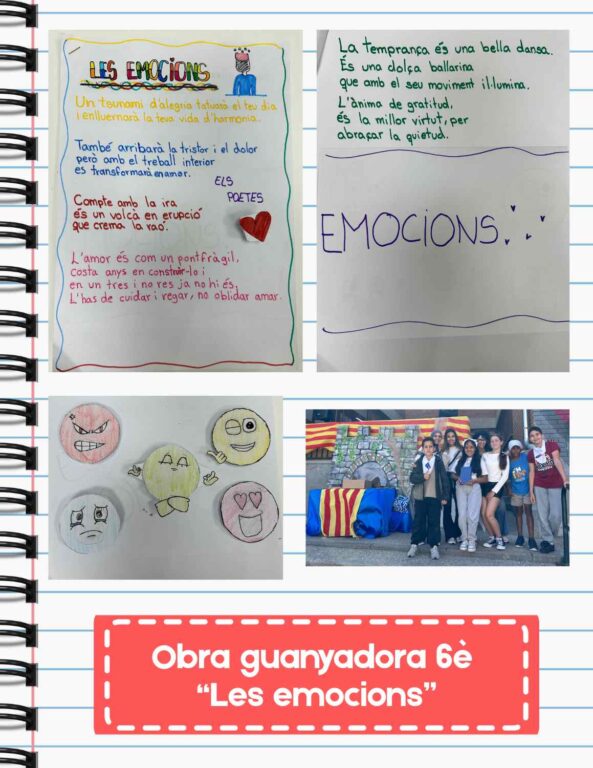 LES EMOCIONS
Un tsunami d'alegria tatuarà el teu dia
i enlluernarà la teva vida d'harmonia.
També arribarà la tristor i el dolor
però amb el treball interior
es transformarà en amor.
ELS
POETES
Compte amb la ira
és un volcà en erupció
que crema la raó.
L'amor és com un pont fràgil,
costa anys en construir-lo i
en un tres i no res ja no hi és.
L'has de cuidar i regar, no oblidar amar.
La temprança és una bella dansa.
És una dolça ballarina
que amb el seu moviment il·lumina.
L'ànimo de gratitud,
és la millor virtut, per
abraçar la quietud.
EMOCIONS
Obra guanyadora 6è
“Les emocions”